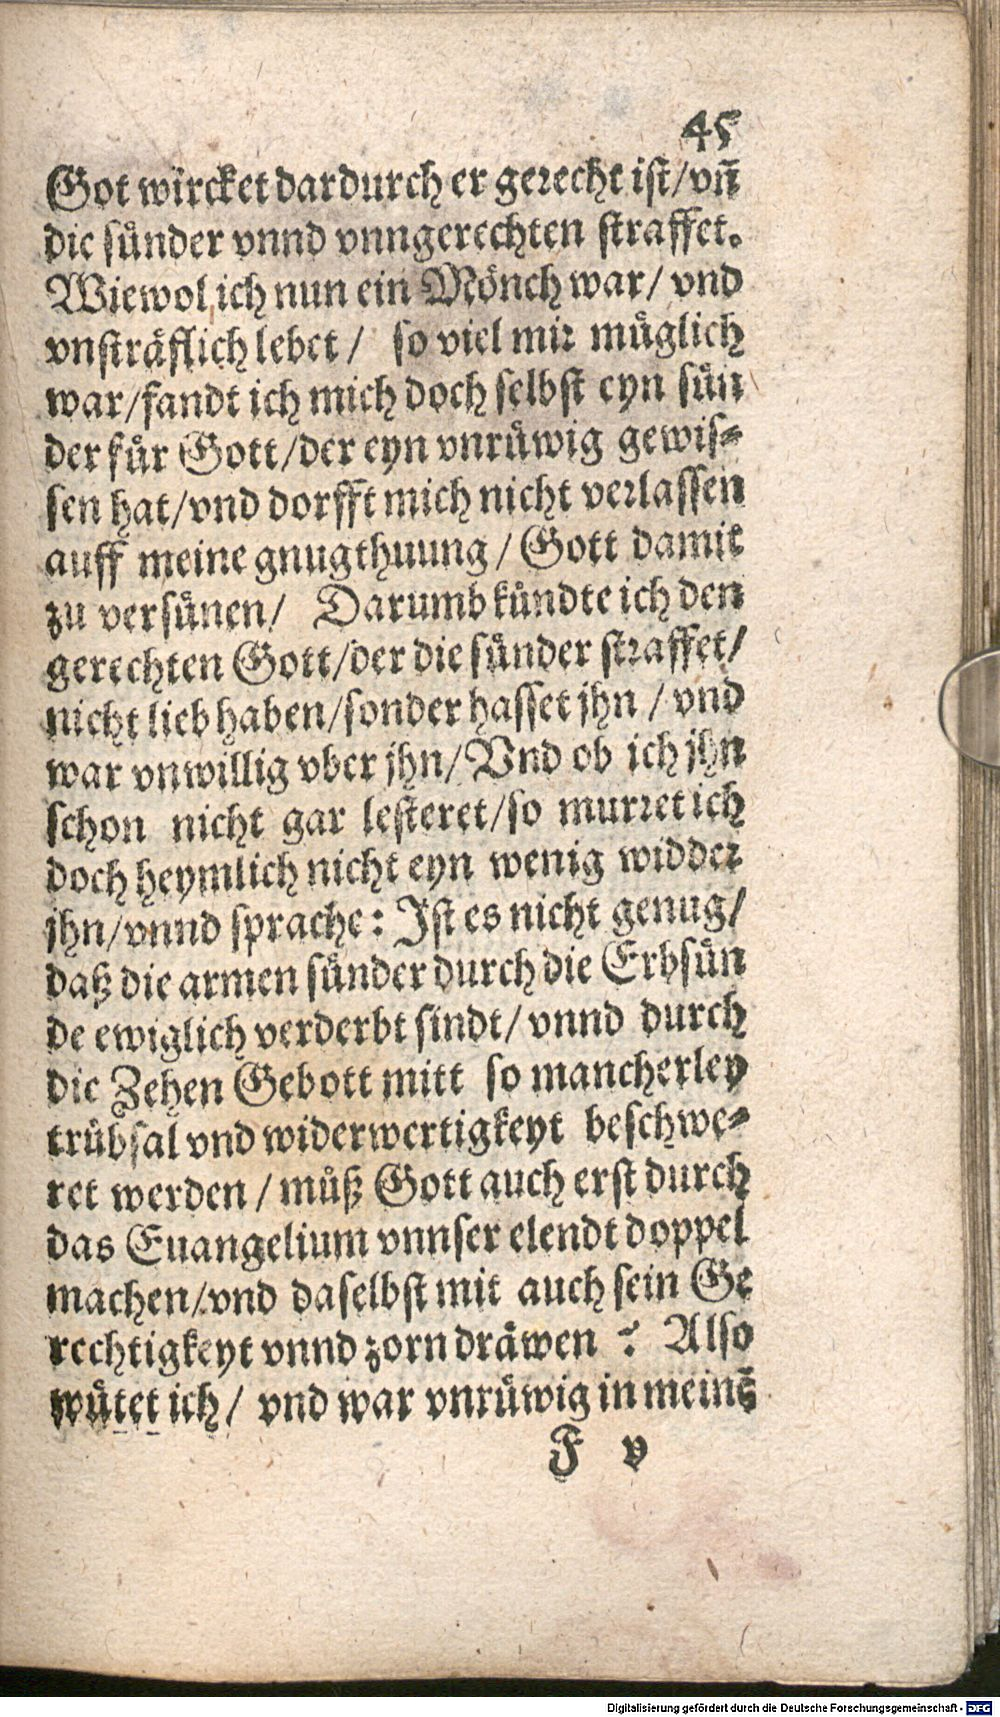 45
Got wircket dardurch er gerecht ist/vñ
die sünder vnnd vnngerechten straffet.
Wiewol ich nun ein Mönch war/ vnd
vnsträflich lebet / so viel mir müglich
war/fandt ich mich doch selbst eyn sün
der für Gott/der eyn vnrüwig gewis-
sen hat/vnd dorfft mich nicht verlassen
auff meine gnugthuung / Gott damit
zu versünen/ Darumb kündte ich den
gerechten Gott/der die sünder straffet/
nicht lieb haben/sonder hasset jhn / vnd
war vnwillig vber jhn/ Vnd ob ich jhn
schon nicht gar lesteret/so murret ich
doch heymlich nicht eyn wenig widder
jhn/vnnd sprache: Ist es nicht genug/
daß die armen sünder durch die Erbsün
de ewiglich verderbt sindt/ vnnd durch
die Zehen Gebott mitt so mancherley
trübsal vnd widerwertigkeyt beschwe-
ret werden / müß Gott auch erst durch
das Euangelium vnnser elendt doppel
machen/vnd daselbst mit auch sein Ge
rechtigkeyt vnnd zorn dräwen ? Also
wütet ich/ vnd war vnrüwig in meinẽ
F v
Digitalisierung gefördert durch die Deutsche Forschungsgemeinschaft - DFG